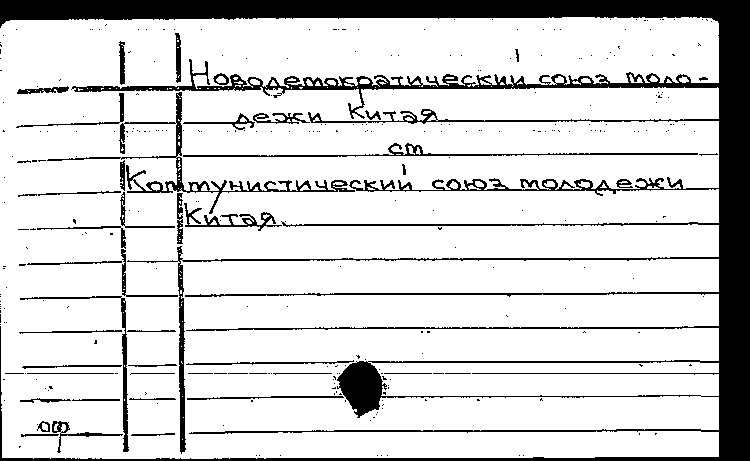 Новодемократический союз моло-
дежи Китая
см
Коммунистический союз молодежи
Китая.